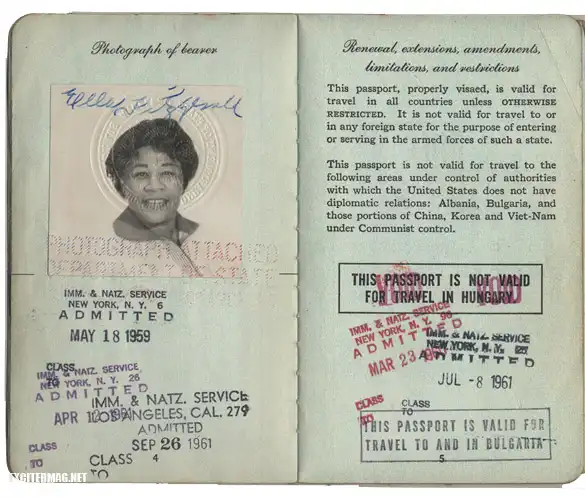 Photograph of bearer
Ella Fitzgerald
PHOTOGRAPH ATTACHED
DEPARTMENT OF STATE
IMM. & NATZ. SERVICE
NEW YORK, N. Y. 6
ADMITTED
MAY 18 1959
CLASS
TO
IMM. & NATZ. SERVICE
NEW YORK, N. Y. 26
ADMITTED
APR
IMM. & NATZ. SERVICE
LOS ANGELES, CAL. 279
ADMITTED
SEP 26 1961
CLASS
TO
CLASS 4
TO
EXCITEDMAG.NET
Renewal, extensions, amendments,
limitations, and restrictions
This passport, properly visaed, is valid for
travel in all countries unless OTHERWISE
RESTRICTED. It is not valid for travel to or
in any foreign state for the purpose of entering
or serving in the armed forces of such a state.
This passport is not valid for travel to the
following areas under control of authorities
with which the United States does not have
diplomatic relations: Albania, Bulgaria, and
those portions of China, Korea and Viet-Nam
under Communist control.
THIS PASSPORT IS NOT VALID
FOR TRAVEL IN HUNGARY
VOID VOID
IMM. & NATZ. SERVICE
NEW YORK, N. Y. 98
ADMITTED
MAR 23
IMM. & NATZ. SERVICE
NEW YORK, N. Y.
ADMITTED
JUL -8 1961
CLASS
TO
CLASS
TO
THIS PASSPORT IS VALID FOR
TRAVEL TO AND IN BULGARIA
5